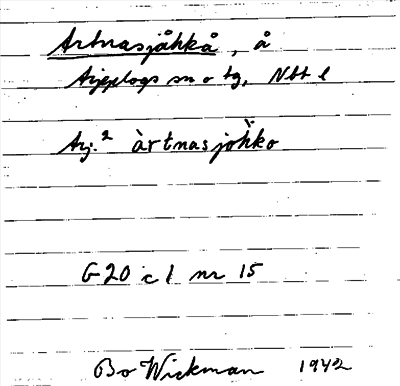 Artnasjåhkå, å
Arjeplogs sn o tg, Nbt l
Arj.² àrtnasjoh̀ko
G20 c 1 nr 15
Bo Wickman 1942